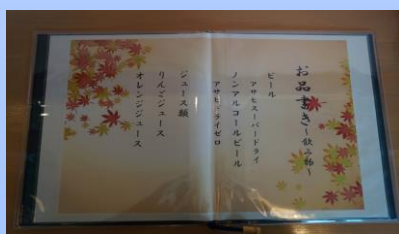 お品書き~飲み物~
ビール
アサヒスーパードライ
ノンアルコールビール
アサヒドライゼロ
ジュース類
りんごジュース
オレンジジュース